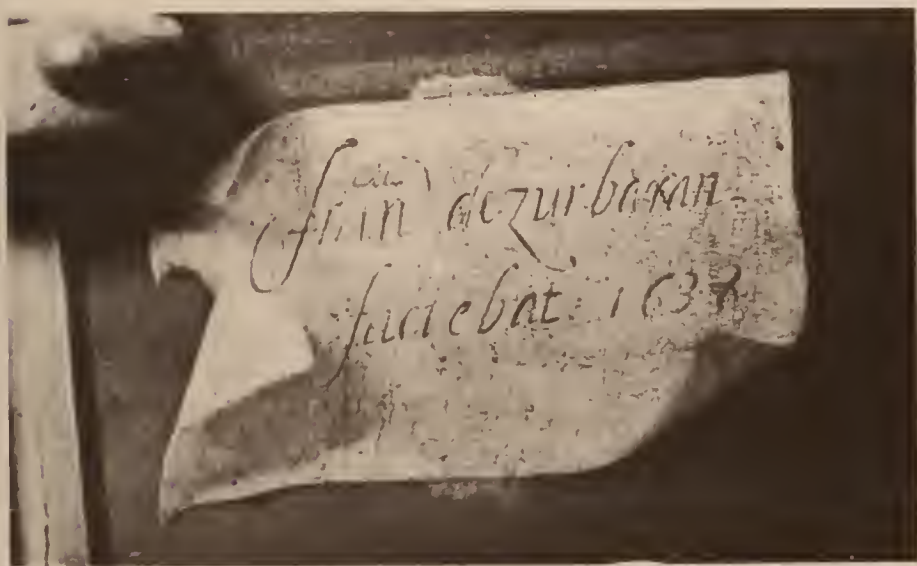 Fran^co dezurbaran
faciebat 1638